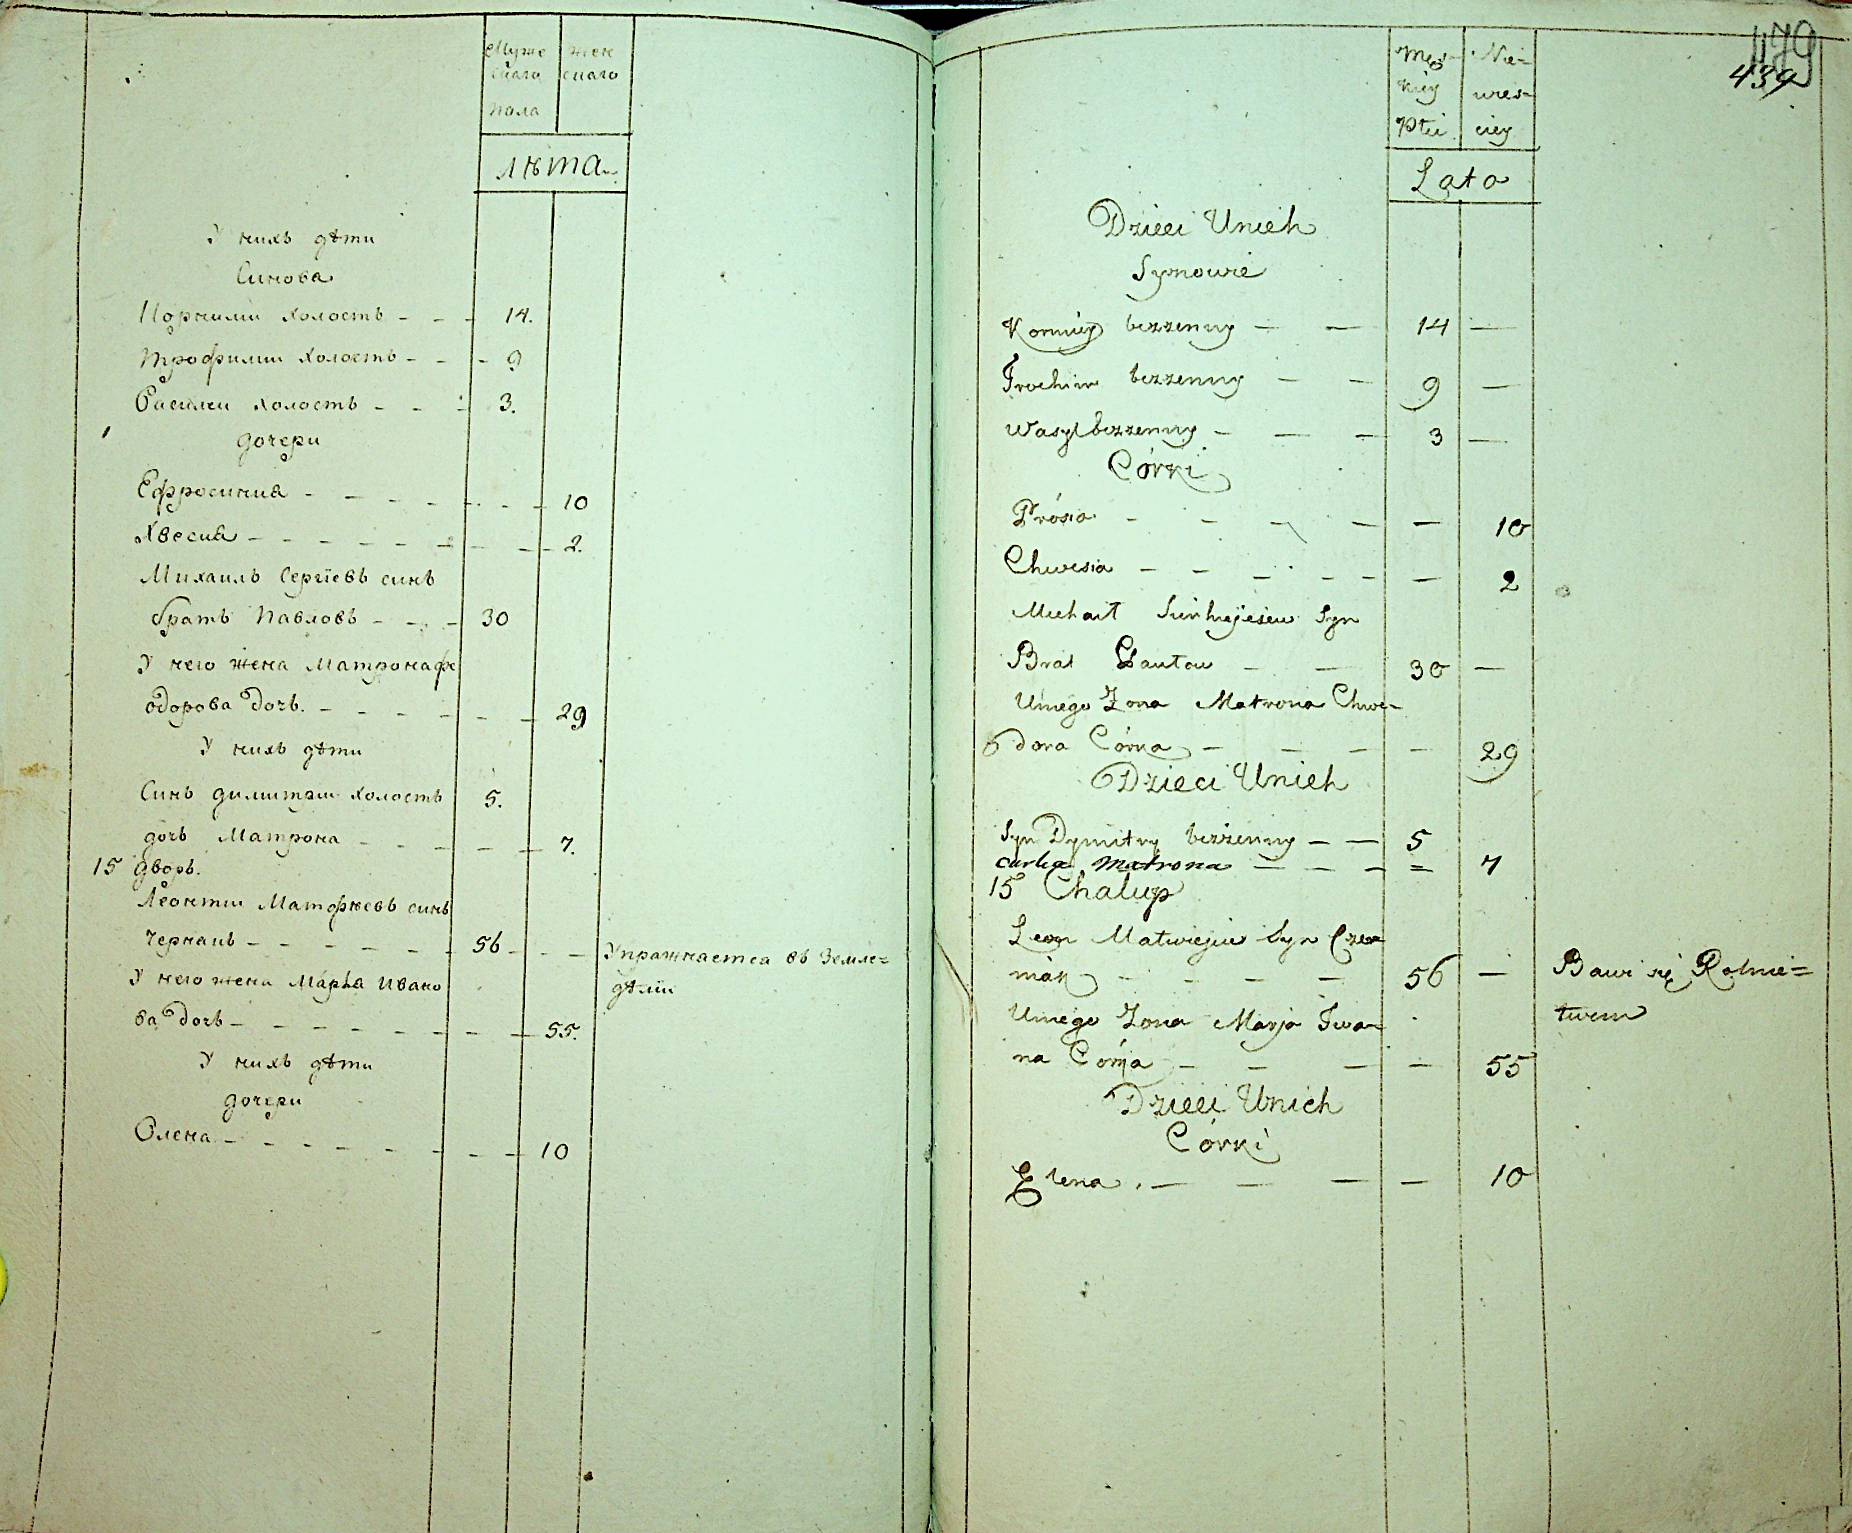 Муже жен
скаго скаго
пола
лѣта
У нихъ дѣти
Синова
Корнилии холостъ - - - 14.
Трофилии холостъ - - - 9
Василии холостъ - - - 3.
дочери
Ефросиния - - - - - - - 10
Хвесия - - - - - - - - 2.
Михаилъ Сергіевъ синъ
братъ Павловъ - - - 30
У него жена Матрона фе
одорова дочь. - - - - - - 29
У нихъ дѣти
Синъ димитрии холостъ 5.
дочь Матрона - - - - - 7.
15 дворъ.
Леонтии Матфѣевъ синъ
Чермакъ - - - - - - 56 - - - Упражняется въ Земле=
дѣліи
У него жена Марья Ивано
ва дочь - - - - - - - - 55.
У нихъ дѣти
дочери
Олена - - - - - - - - 10
179
439
Męs- Nie-
kiey wies=
Płci ciey
Lata
Dzieci Unich
Synowie
Korniey bezzenny — — 14 —
Trochim bezzenny — — 9 —
Wasyl bezzenny - — — 3 —
Córki
Prósia - - - — — 10
Chwesia - - - - - — 2
Michait Syn
Brat Pawłow - — 30 —
Uniego Zona Matrona Chwe-
dora Córka - — — — 29
Dzieci Unich
Syn Dymitry bezżenny — — 5
curka Matrona — — — = 7
15 Chalup
Leon Matwiejew Syn Czer
mak - - — — 56 — Bawi się Rolnic=
twem
Uniego Zona Marja Iwa-
na Córka — — — — 55
Dzieci Unich
Córki
Elena . — — — — 10